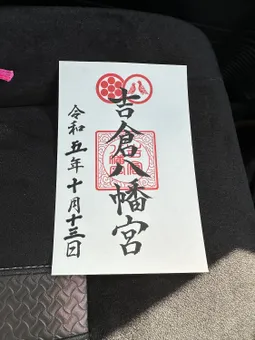 吉倉八幡宮
令和五年十月十三日